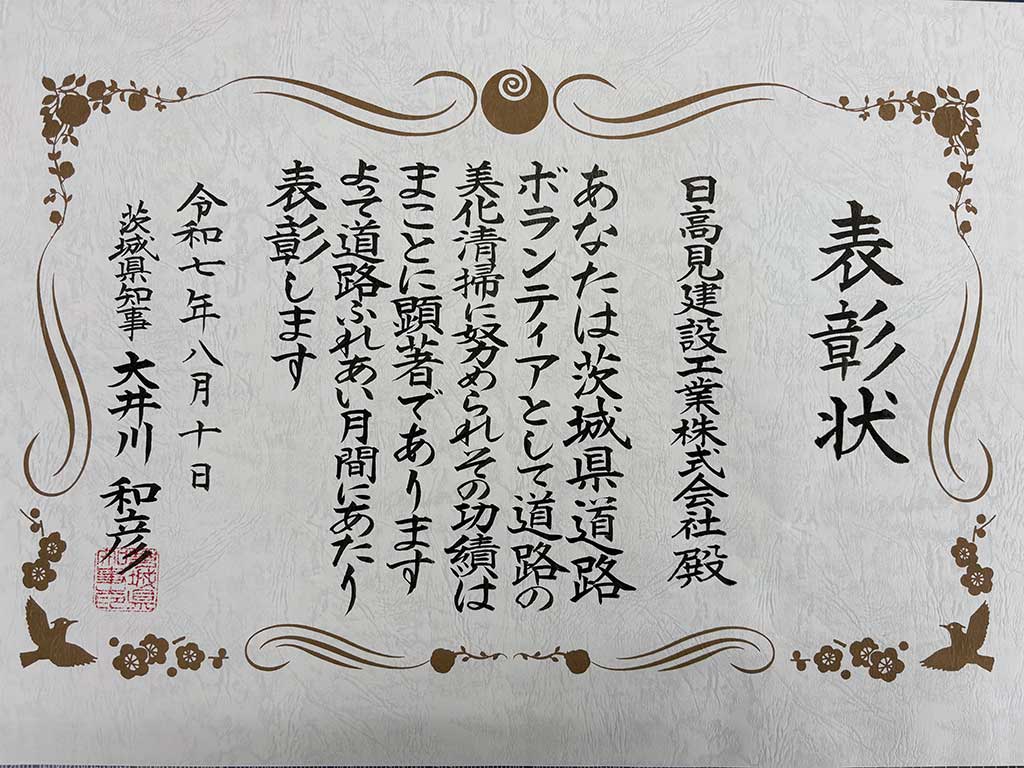 表彰状
日高見建設工業株式会社 殿
あなたは茨城県道路
ボランティアとして道路の
美化清掃に努められその功績は
まことに顕著であります
よって道路ふれあい月間にあたり
表彰します
令和七年八月十日
茨城県知事 大井川 和彦